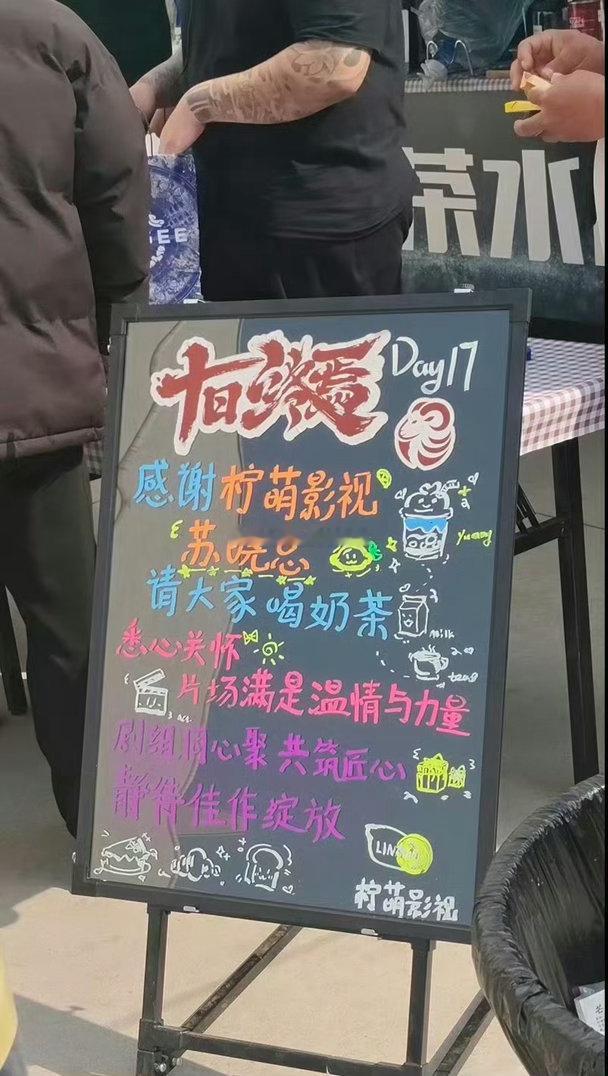 茶水
十日终焉 Day17
感谢柠萌影视
苏晓总
请大家喝奶茶
悉心关怀
片场满是温情与力量
剧组同心聚 共筑匠心
静待佳作绽放
milk
柠萌影视